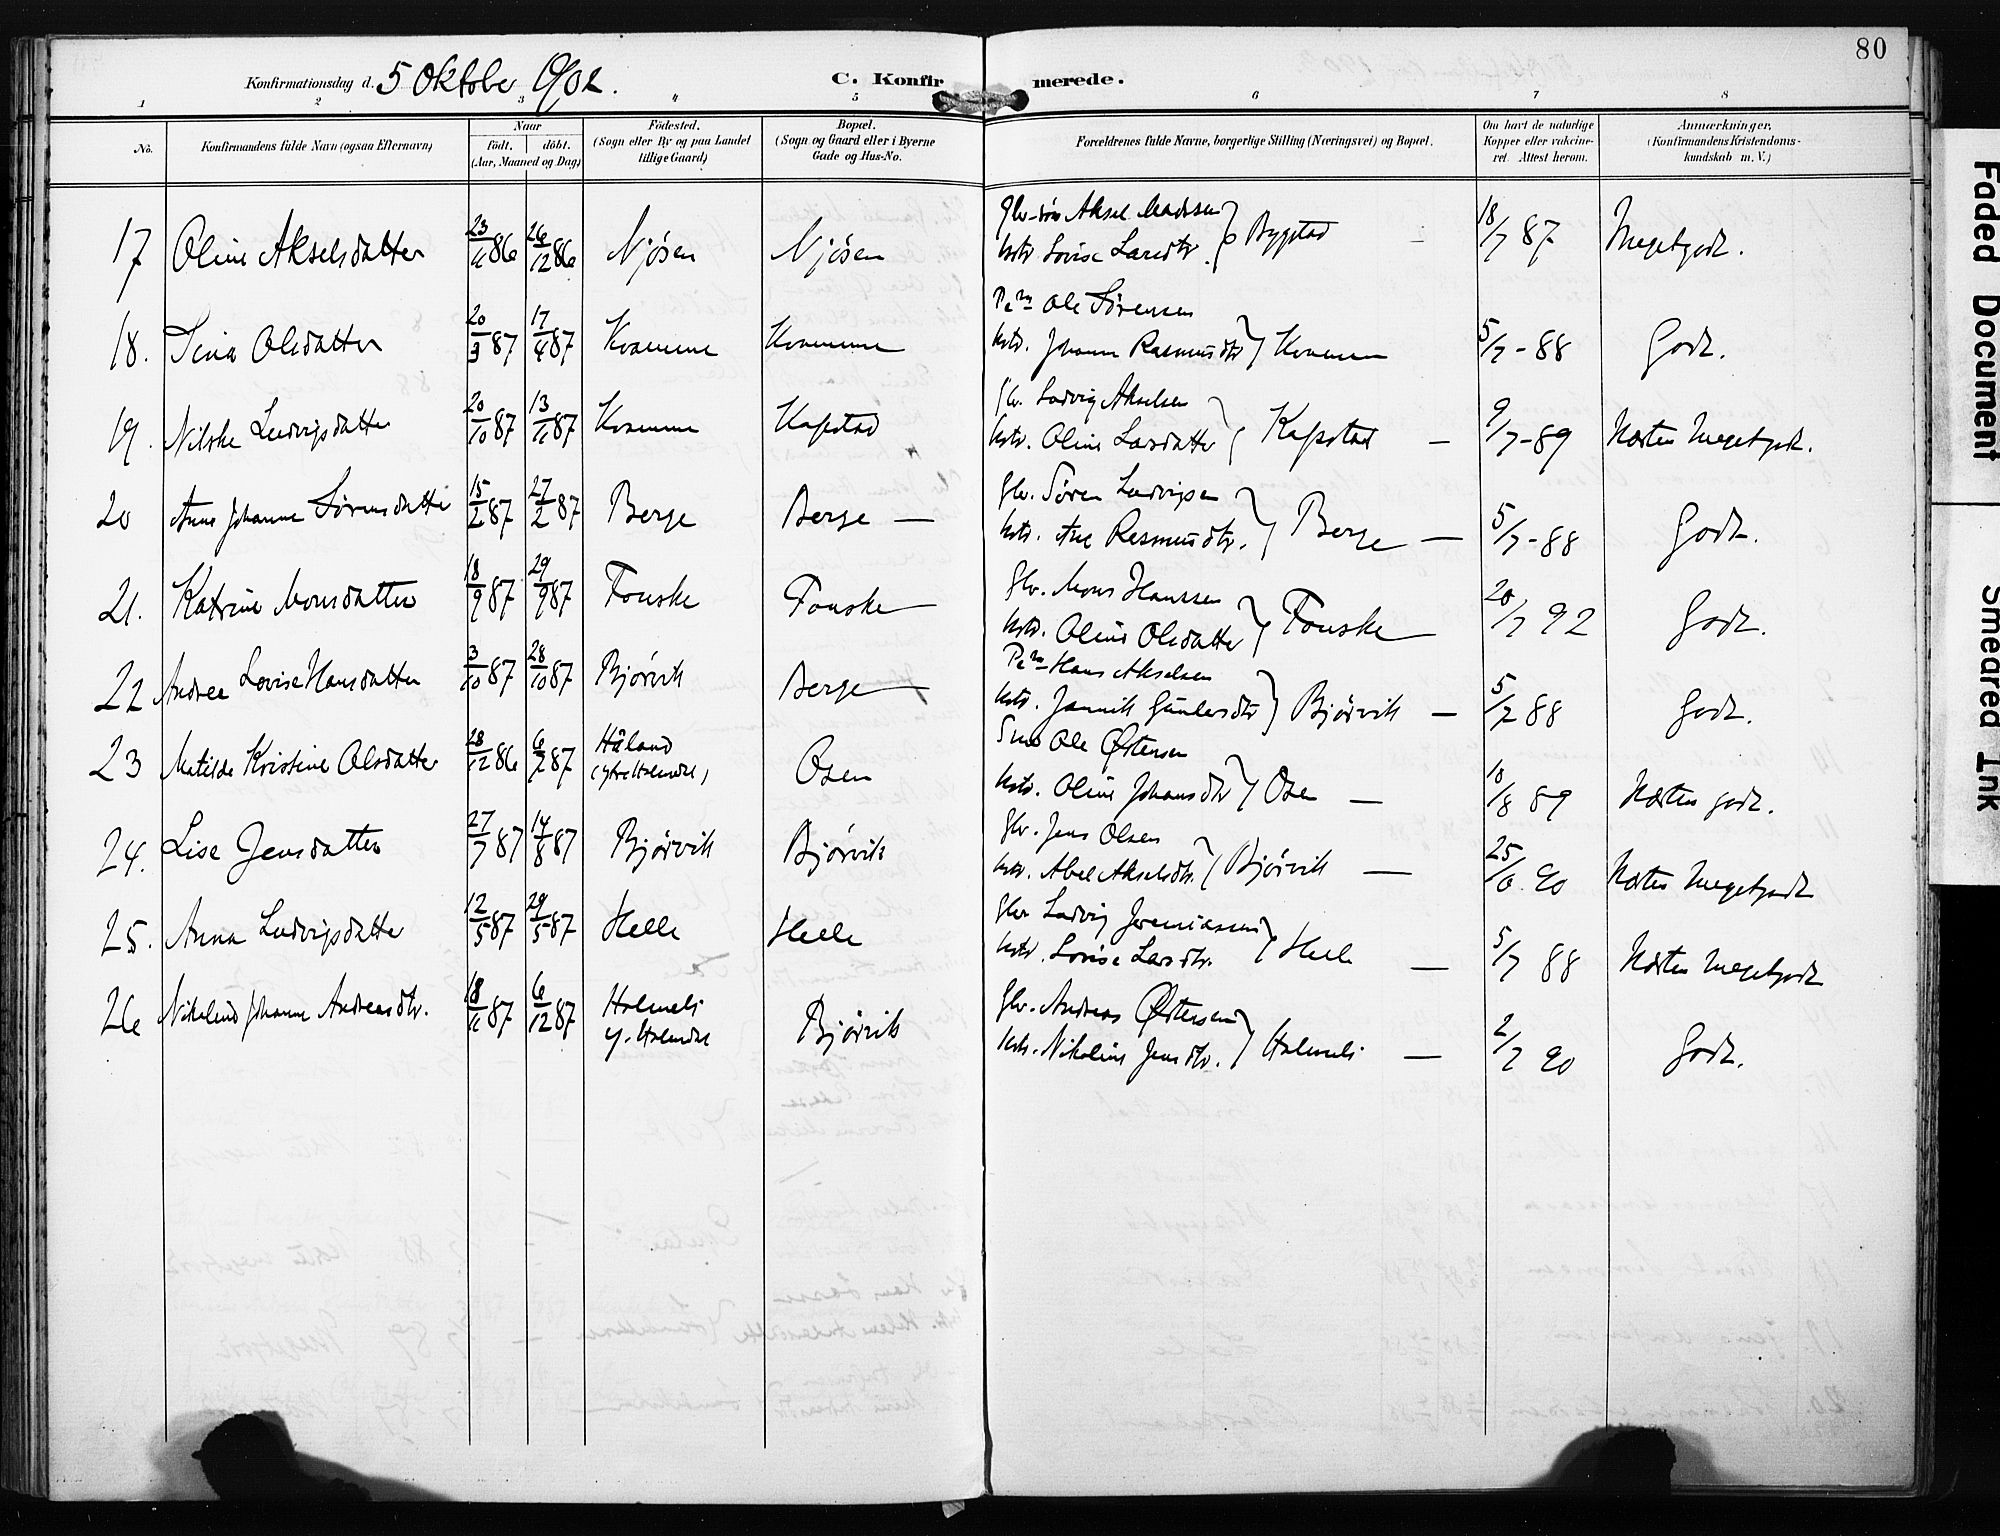 80
Konfirmationsdag d. 5 Oktober 1902.
C. Konfirmerede.
1 2 3 4 5 6 7 8
No. Konfirmandens fulde Navn (ogsaa Efternavn) Naar født. døbt. (Aar, Maaned og Dag) Fødested. (Sogn eller By og paa Landet tillige Gaard) Bopæl. (Sogn og Gaard eller i Byerne Gade og Hus-No. Forældrenes fulde Navne, borgerlige Stilling (Næringsvei) og Bopæl. Om havt de naturlige Kopper eller vakcineret. Attest herom. Anmærkninger. (Konfirmandens Kristendomskundskab m. V.)
17 Oline Akselsdatter 23/11 86 26/12 86 Njøsen Njøsen Aksel Madssen Lovise Larsdtr. Bygstad 18/7 87 Megetgodt.
18. Sina Olsdatter 20/3 87 17/4 87 Kvamme Kvamme Ole Sørensen Johanne Rasmusdtr Kvamme 5/7-88 Godt.
19. Nilske Ludvigsdatter 20/10 87 13/11 87 Kvamme Kapstad Gbr. Ludvig Akselsen Kstr. Oline Larsdatter Kapstad — 9/7-89 Næsten Megetgodt.
20 Anne Johanne Sørensdatter 15/2 87 27/2 87 Berge Berge — Gbr. Søren Ludvigsen Kstr. Ane Rasmusdtr. Berge — 5/7-88 Godt.
21. Katrine Monsdatter 18/9 87 29/9 87 Fonske Fonske Gbr. Mons Hanssen Kstr. Oline Olsdatter Fonske 20/7 92 Godt.
22 Andrea Lovise Hansdatter 3/10 87 28/10 87 Bjørvik Berge Hans Akselsen Kstr. Jannik Bjørvik — 5/7 88 Godt.
23 Matilde Kristine Olsdatter 28/12 86 6/2 87 Håland (ytre Holmedal) Osen Ole Østensen Kstr. Oline Johansdtr Osen — 10/8 89 Næsten godt.
24. Lise Jensdatter 27/7 87 14/8 87 Bjørvik Bjørvik Gbr. Jens Olsen Kstr. Abel Akselsdtr. Bjørvik — 25/6 90 Næsten Megetgodt
25. Anna Ludvigsdatter 12/5 87 29/5 87 Helle Helle Gbr Ludvig Jeremiassen Kstr. Lovise Larsdtr. Helle — 5/7 88 Næsten Megetgodt
26 Nikoline Johanne Andreasdtr. 18/11 87 6/12 87 Holmeli y. Holmedal Bjørvik Gbr. Andreas Østensen Kstr. Nikoline Jensdtr. Holmeli — 2/7 90 Godt.
Faded Document
Smeared Ink